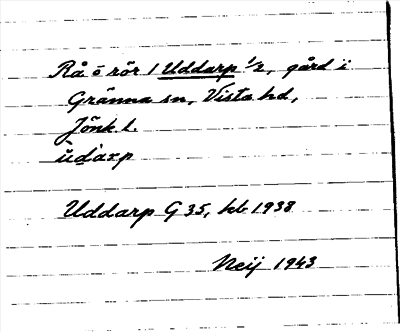 Rå o rör / Uddarp 1/2, gård i
Gränna sn, Vista hd,
Jönk. l.
ùdarp
Uddarp G 35, kb 1938
Neij 1943